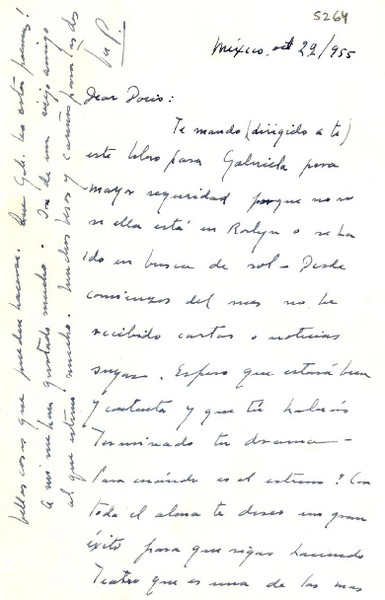 5264
México, oct 29/955
Dear Doris:
Te mando (dirigido a te)
este libro para Gabriela para
mayor seguridad porque no se
si ella está en Roslyn o se ha
ido en busca de sol - Desde
comienzos del mes no he
recibido cartas o noticias
suyas. Espero que estará bien
y contenta y que tú habrás
terminado tu drama -
Para cuándo es el estreno? Con
toda el alma te deseo un gran
éxito para que sigas haciendo
Teatro que es una de las mas
bellas cosas que pueden hacerse. Que Gab. lea estos poemas!
A mi me han gustado mucho. Son de un viejo amigo
al que estimo mucho. Muchos besos y cariños para las dos